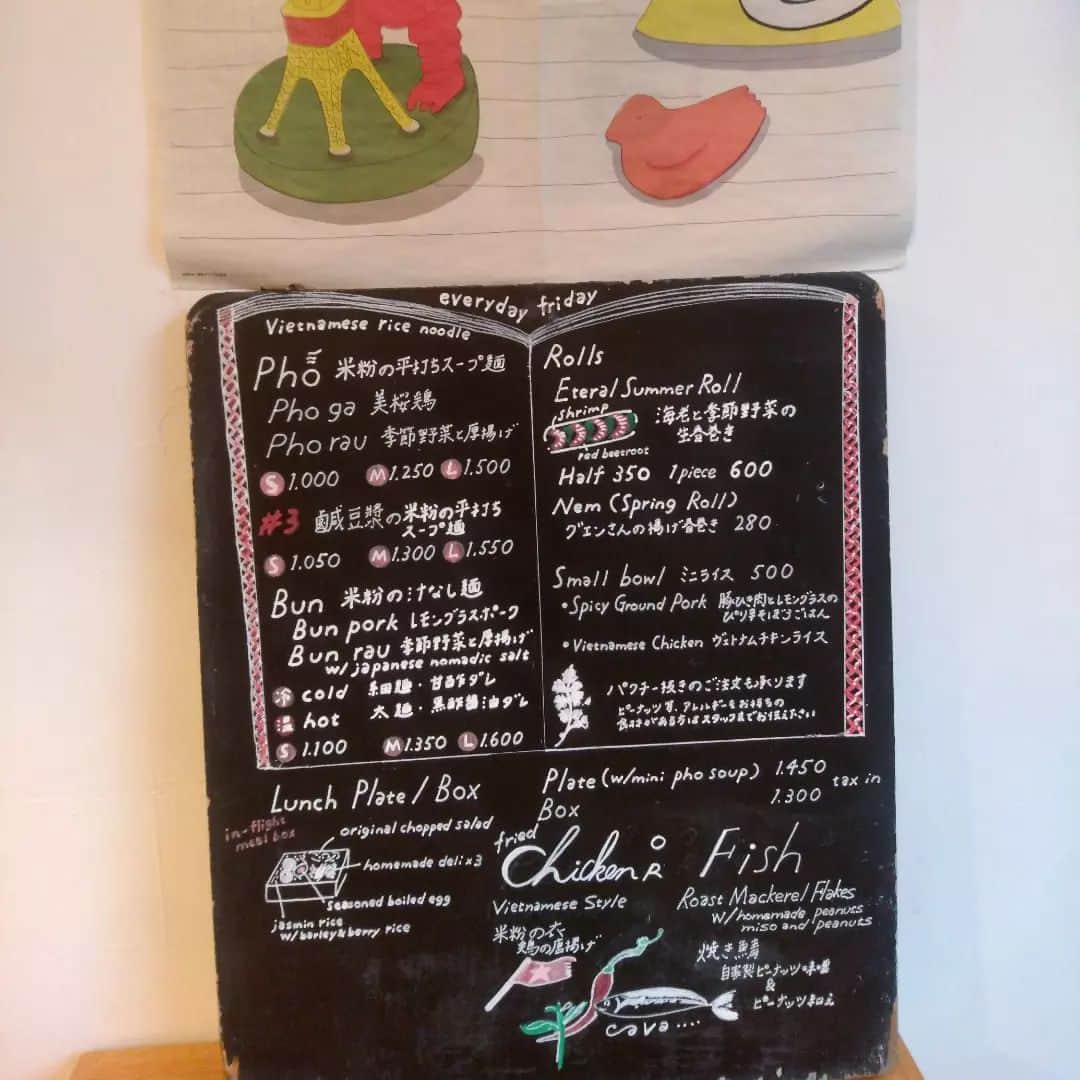 everyday friday
Vietnamese rice noodle
Phở 米粉の平打ちスープ麺
Pho ga 美桜鶏
Pho rau 季節野菜と厚揚げ
S 1.000 M 1.250 L 1.500
#3 鹹豆漿の米粉の平打ち
スープ麺
S 1.050 M 1.300 L 1.550
Bun 米粉の汁なし麺
Bun pork レモングラスポーク
Bun rau 季節野菜と厚揚げ
w/ japanese nomadic salt
冷 cold 細麺・甘酢ダレ
温 hot 太麺・黒酢醤油ダレ
S 1.100 M 1.350 L 1.600
Rolls
Eteral Summer Roll
shrimp
海老と季節野菜の
生春巻き
red beetroot
Half 350 1piece 600
Nem (Spring Roll)
グエンさんの揚げ春巻き 280
Small bowl ミニライス 500
・Spicy Ground Pork 豚ひき肉とレモングラスの
ぴり辛そぼろごはん
・Vietnamese Chicken ヴェトナムチキンライス
パクチー抜きのご注文も承ります
ピーナッツ等、アレルギーをお持ちの
食材がある方はスタッフまでお伝え下さい
Lunch Plate / Box
Plate (w/mini pho soup) 1.450
Box 1.300
tax in
in-flight
meal box
original chopped salad
homemade deli x3
seasoned boiled egg
jasmin rice
w/ barley & berry rice
fried
Chicken
OR
Fish
Vietnamese Style
米粉の衣
鶏の唐揚げ
Roast Mackerel Flakes
w/homemade peanuts
miso and peanuts
焼き鯖
自家製ピーナッツ味噌
&
ピーナッツ和え
cava....